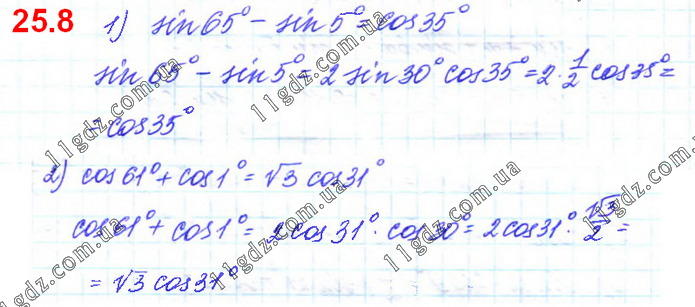 25.8 1) sin 65° - sin 5° = cos 35°
sin 65° - sin 5° = 2 sin 30° cos 35° = 2 · 1/2 cos 35° =
= cos 35°
2) cos 61° + cos 1° = √3 cos 31°
cos 61° + cos 1° = 2 cos 31° · cos 30° = 2 cos 31° · √3/2 =
= √3 cos 31°
11gdz.com.ua
11gdz.com.ua
11gdz.com.ua
11gdz.com.ua